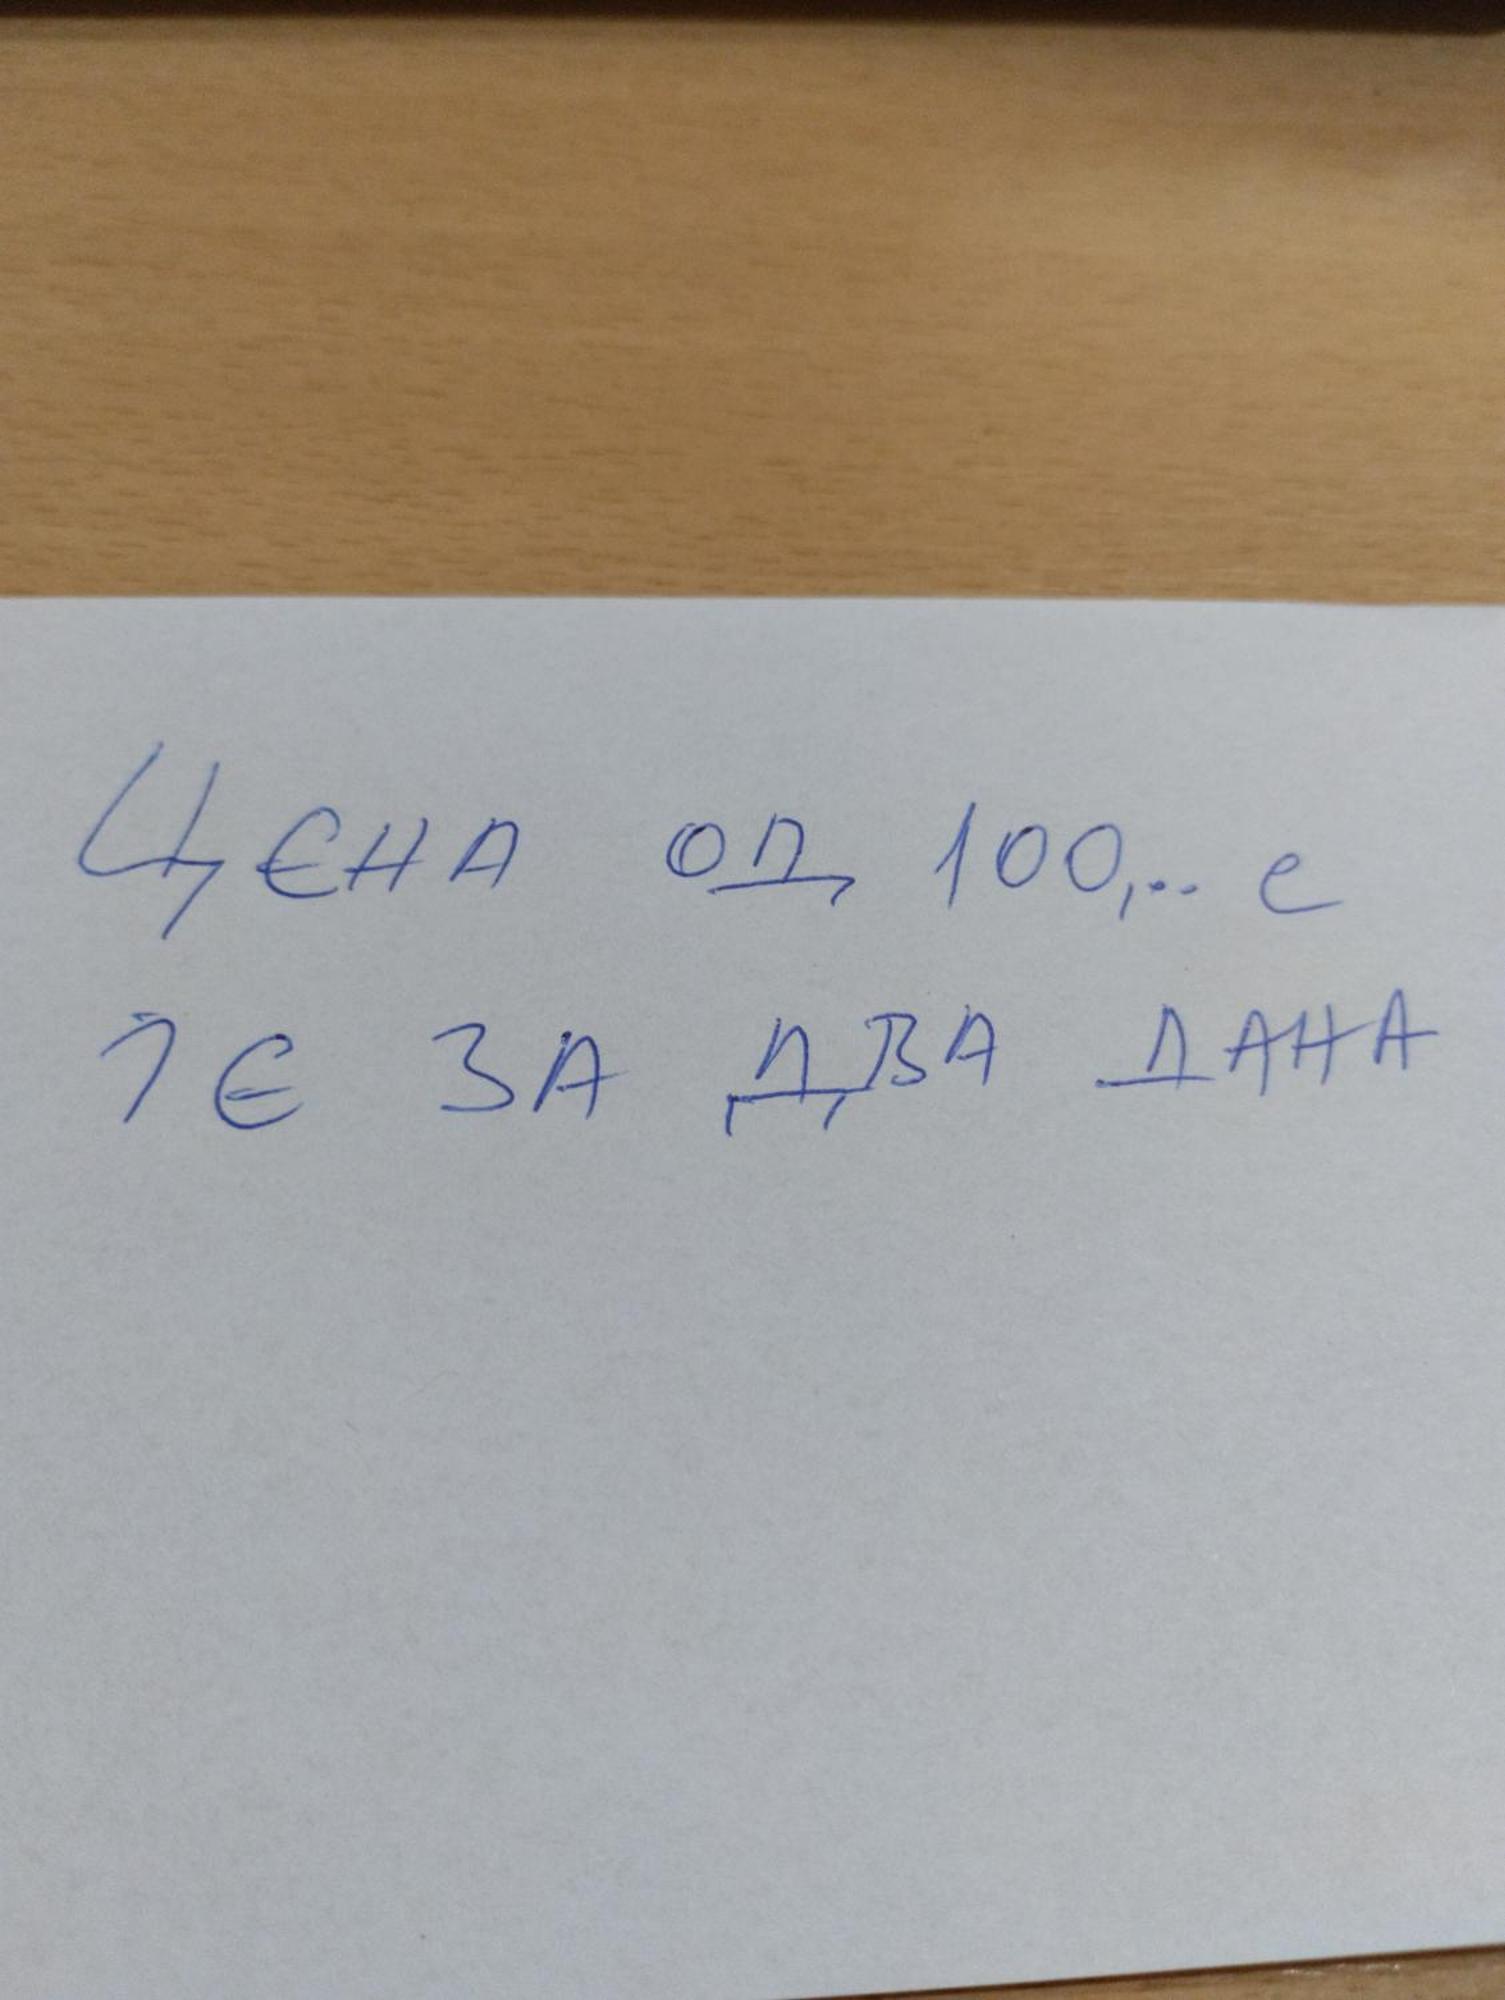 ЦЕНА ОД 100,.. е
ЈЕ ЗА ДВА ДАНА